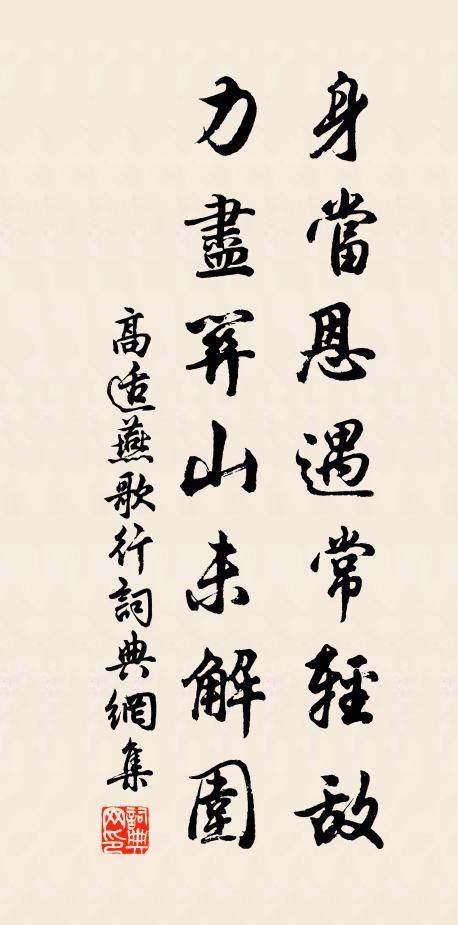 身當恩遇常輕敵
力盡關山未解圍
高适燕歌行詞典網集
詞典網印